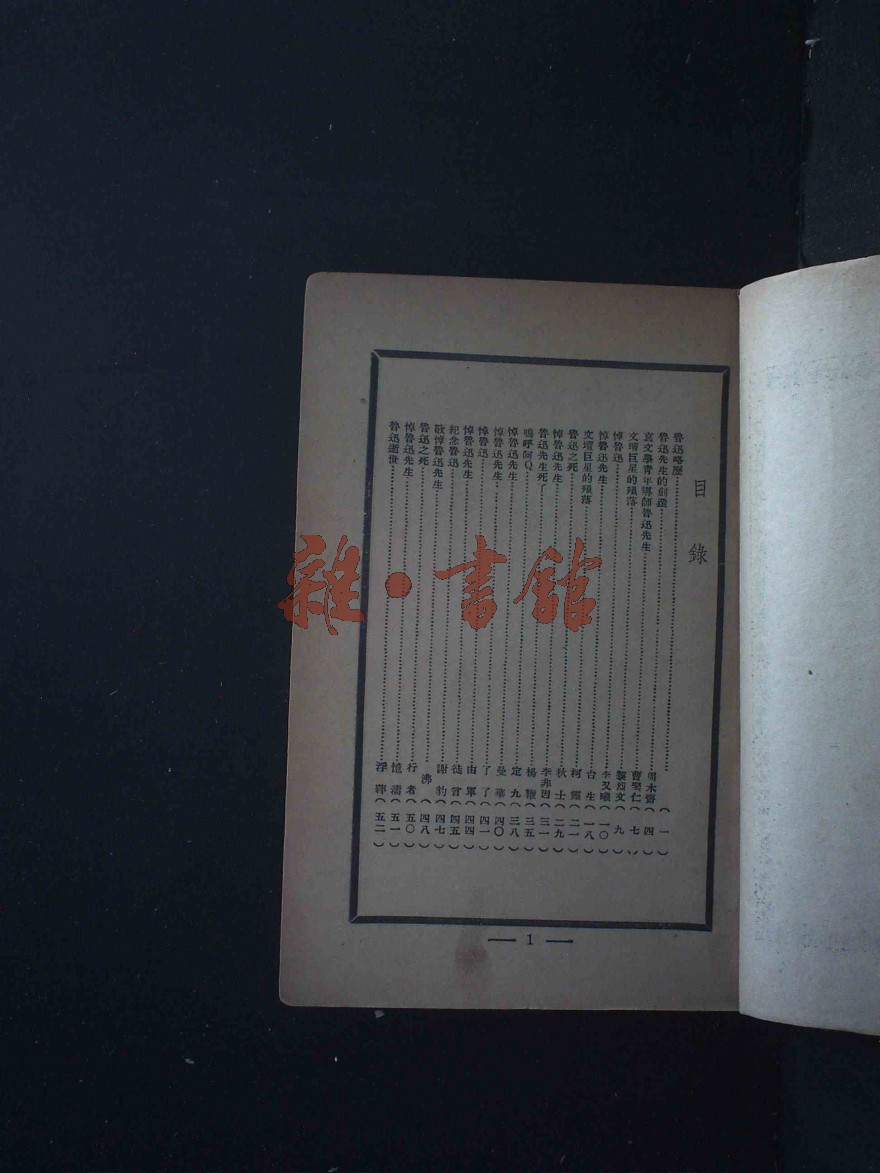 目錄
魯迅略歷……(一)
魯迅先生的創造……周木齋(四)
哀文學青年導師魯迅先生……曹聚仁(七)
文壇巨星的殞落……黎烈文(九)
悼魯迅……李又曦(一〇)
悼魯迅先生……台生(一八)
文壇巨星的殞落……柯(二一)
魯迅之死……秋士(二九)
悼魯迅先生……李非因(三一)
魯迅先生死了……楊鞭(三五)
嗚呼阿Q……定九(三八)
悼魯迅先生……曼華(四〇)
悼魯迅先生……了了(四一)
悼魯迅……由軍(四四)
悼魯迅先生……徒(四五)
紀念魯迅……謝豹(四七)
敬悼魯迅先生……沸(四八)
魯迅之死……行者(五〇)
悼魯迅先生……憶(五一)
魯迅逝世……浮(五二)
— 1 —
雜·書館